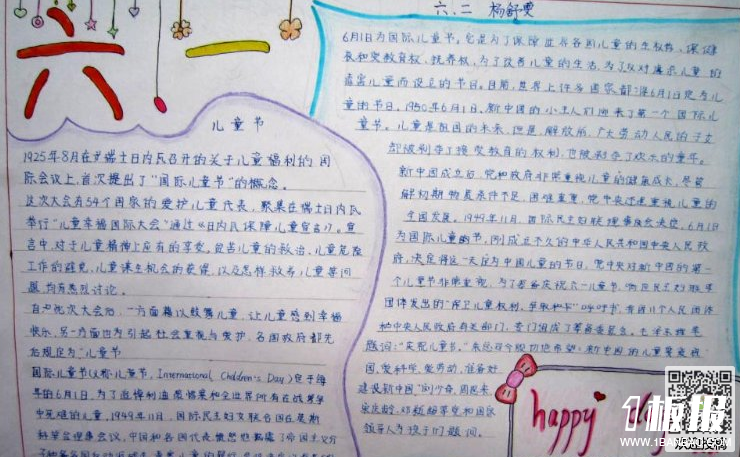 六 一
六.二 杨舒雯
儿童节
1925年8月在 瑞士日内瓦召开的关于儿童福利的国
际会议上,首次提出了"国际儿童节"的概念。
这次大会有54个国家的爱护儿童代表,聚集在瑞士日内瓦
举行"儿童幸福国际大会"通过《日内瓦保障儿童宣言》。宣
言中,对于儿童精神上应有的享受,贫苦儿童的救治,儿童危险
工作的避免,儿童谋生机会的获得,以及怎样救养儿童等问
题,均有热烈讨论。
自此次大会后,一方面藉以鼓舞儿童,让儿童感到幸福
快乐,另一方面也为引起社会重视与爱护,各国政府都先
后规定为"儿童节
国际儿童节(又称儿童节,International Children's Day)定于每
年的6月1日,为了
中死难的儿童,1949年11月,国际民主妇女联合会在莫斯
科举会理事会议,中国和各国代表愤怒地
6月1日为国际儿童节。它是为了保障世界各国儿童的生权、保健
和受教育权,抚养权,为了改善儿童的生活,为了反对 儿童
儿童而设立的节日。目前,世界上许多国家都 6月1日定为儿
童的节日。1950年6月1日,新中国的小主人们迎来了第一个国际儿
童节。儿童是祖国的未来, 解放前,广大劳动人民的子女
都被剥夺了接受教育的权利,也被剥夺了欢乐的童年。
新中国成立后,党和政府非常重视儿童的健康成长。尽管
解初期物质条件不足,困难重重,党中央还是重视儿童的
发展。1949年11月,国际民主妇联理事会决定,6月1日
为国际儿童的节,刚成立不久的中华人民共和国中央人民政
府,决定将这一天定为中国儿童的节日,党中央对新中国的第一
个儿童节非常重视,为了筹备庆祝六一儿童节,响应民主妇联等
团体发出的"保卫儿童权利,争取和平"的呼吁书,有
和中央人民政府有关部门,专门组成了筹备委员会。毛泽东
题词:"庆祝儿童节。" 新中国的儿童要爱祖
国,爱科学,爱劳动,准备好
建设新中国。"刘少奇、周恩来、
宋庆龄、邓颖超等党和国家
领导人为孩子们题词。
happy day
1板报
WWW.1BANBAO.COM